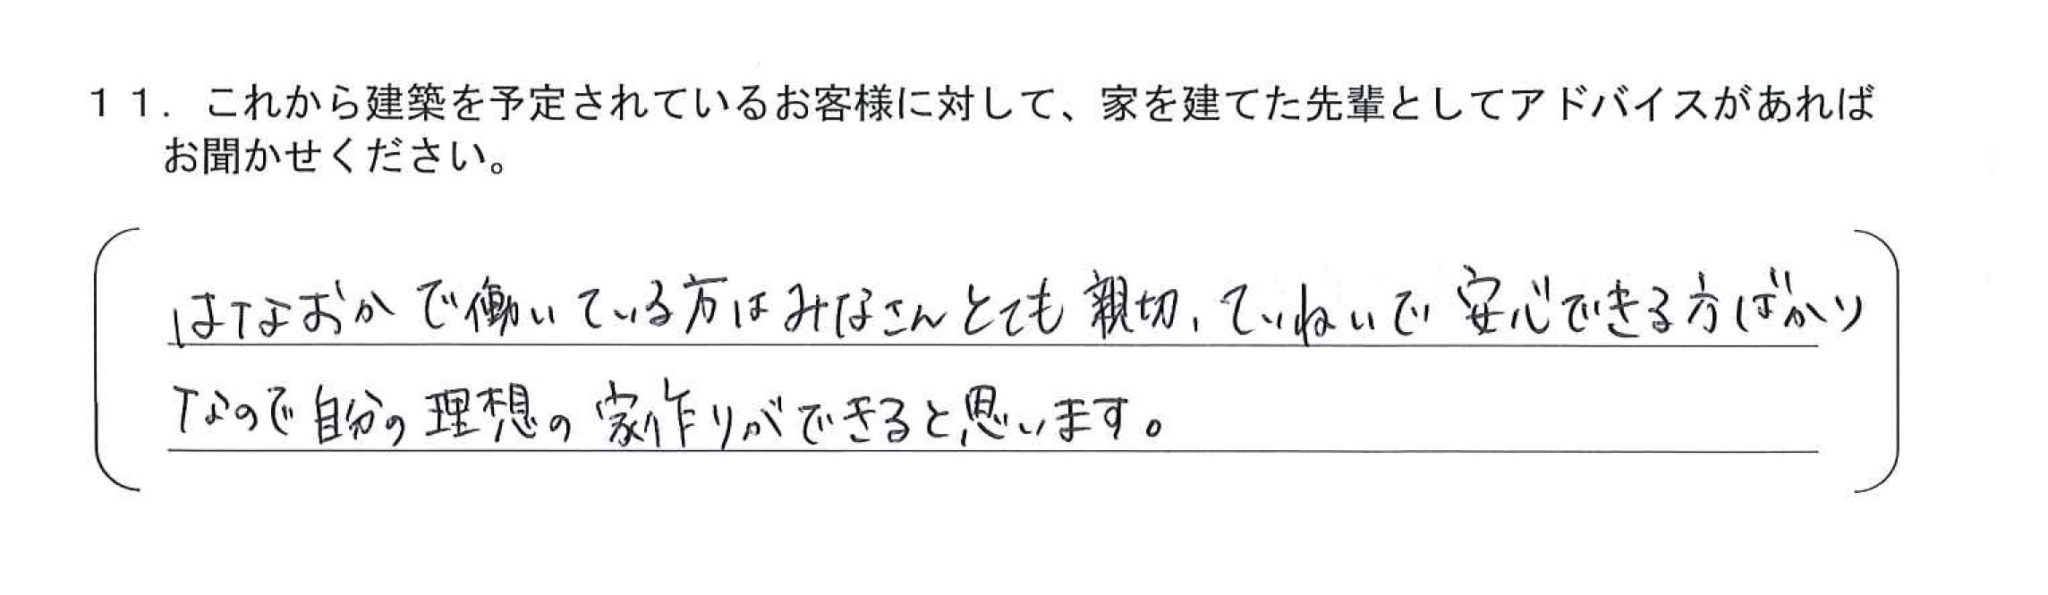 １１．これから建築を予定されているお客様に対して、家を建てた先輩としてアドバイスがあれば
お聞かせください。
はなおかで働いている方はみなさんとても親切、ていねいで安心できる方ばかり
なので自分の理想の家作りができると思います。